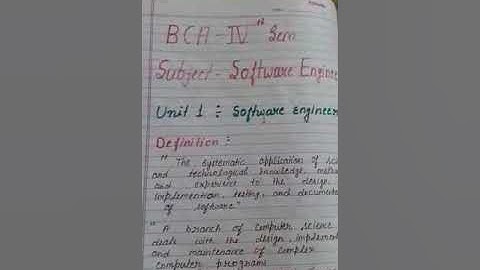 BCA - IV th Sem
Subject - Software Enginee
Unit 1 : Software Engineer
Definition :
" The systematic application of sci
and technological knowledge, meth
and experience to the design,
implementation, testing, and documenta
of software"
" A branch of computer science
deals with the design, implement
and maintenance of complex
computer programs